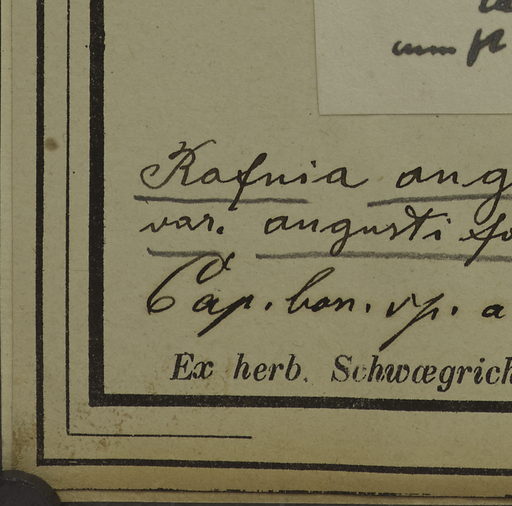 cum fl
Rafnia ang
var. angusti fo
Cap. bon. sp. a
Ex herb. Schwægrich